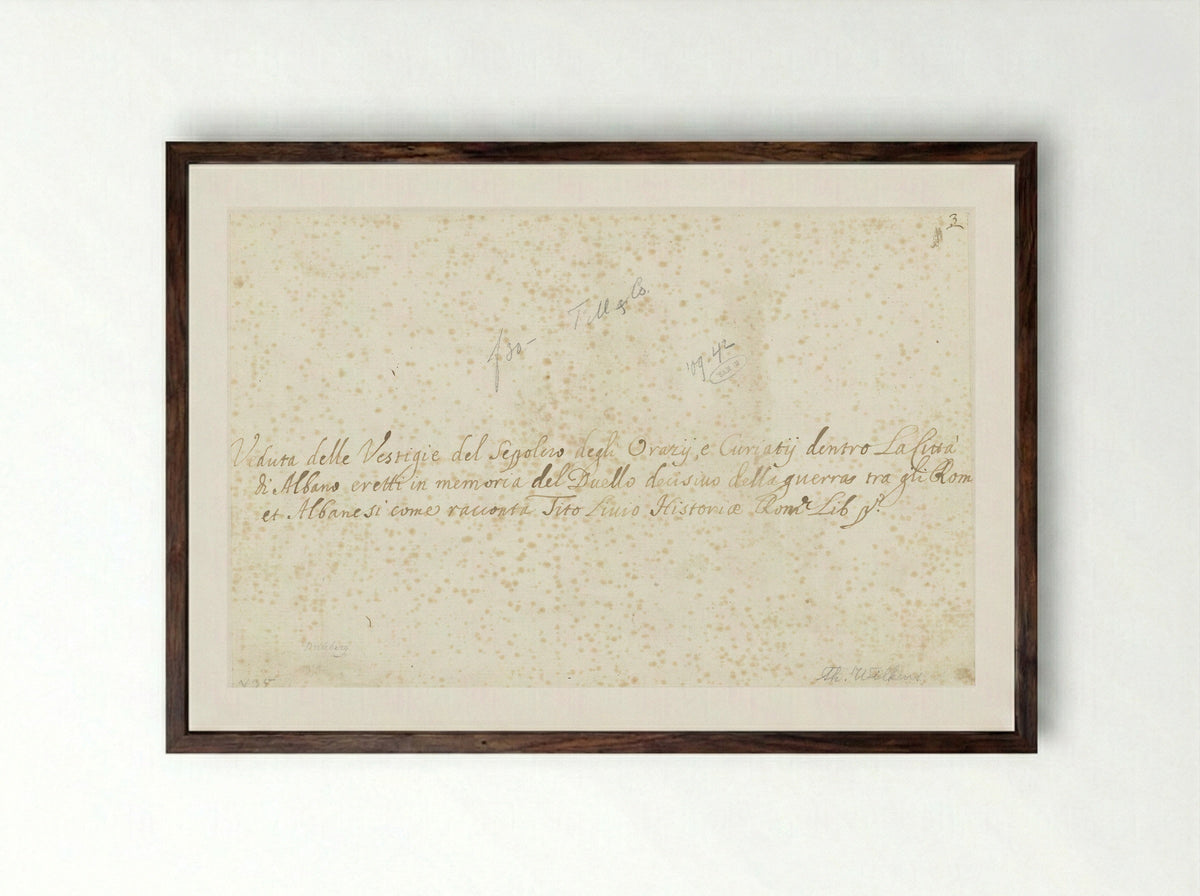 3
T. M & Co.
f 30-
'09-42
Veduta delle Vestigie del Sepolcro degli Orazij, e Curiatij dentro La Città
di Albano eretti in memoria del Duello decisivo della guerra tra gli Rom
et Albanesi come racconta Tito Livio Historiæ Rom: Lib p.º
Th. Wilkens,